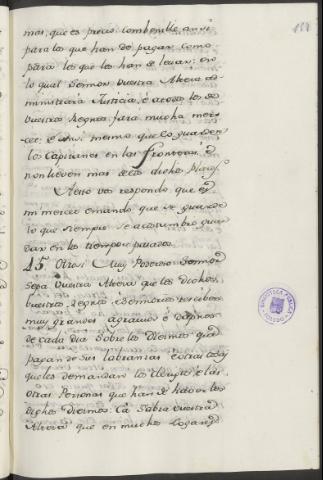 mas, que es precio combenible ansi
para los que han de pagar, como
para los que los han de levar; en
lo qual Sennor Vuestra Alteza ad
ministrara Justicia, é a todos los de
vuestros Regnos fara mucha mer
ced, é ansi mesmo que lo guarden
los Capitanes en las fronteras é
non lieven mas de los dichos
A esto vos respondo que es
mi merced é mando que se guarde
lo que siempre se acostumbró guar
dar en los tiempos pasados
45 Otrosi Muy Poderoso Sennor
Sepa Vuestra Alteza que los dichos
vuestros Regnos é Sennorios resciben
muy grandes agravios é dapnos
de cada dia sobre los Diezmos que
pagan de sus labranzas é crias
que los demandan los Clerigos é las
otras Personas que han de haver los
dichos Diezmos. Ca Sabrá vuestra
Alteza que en muchos Logares
BIBLIOTECA